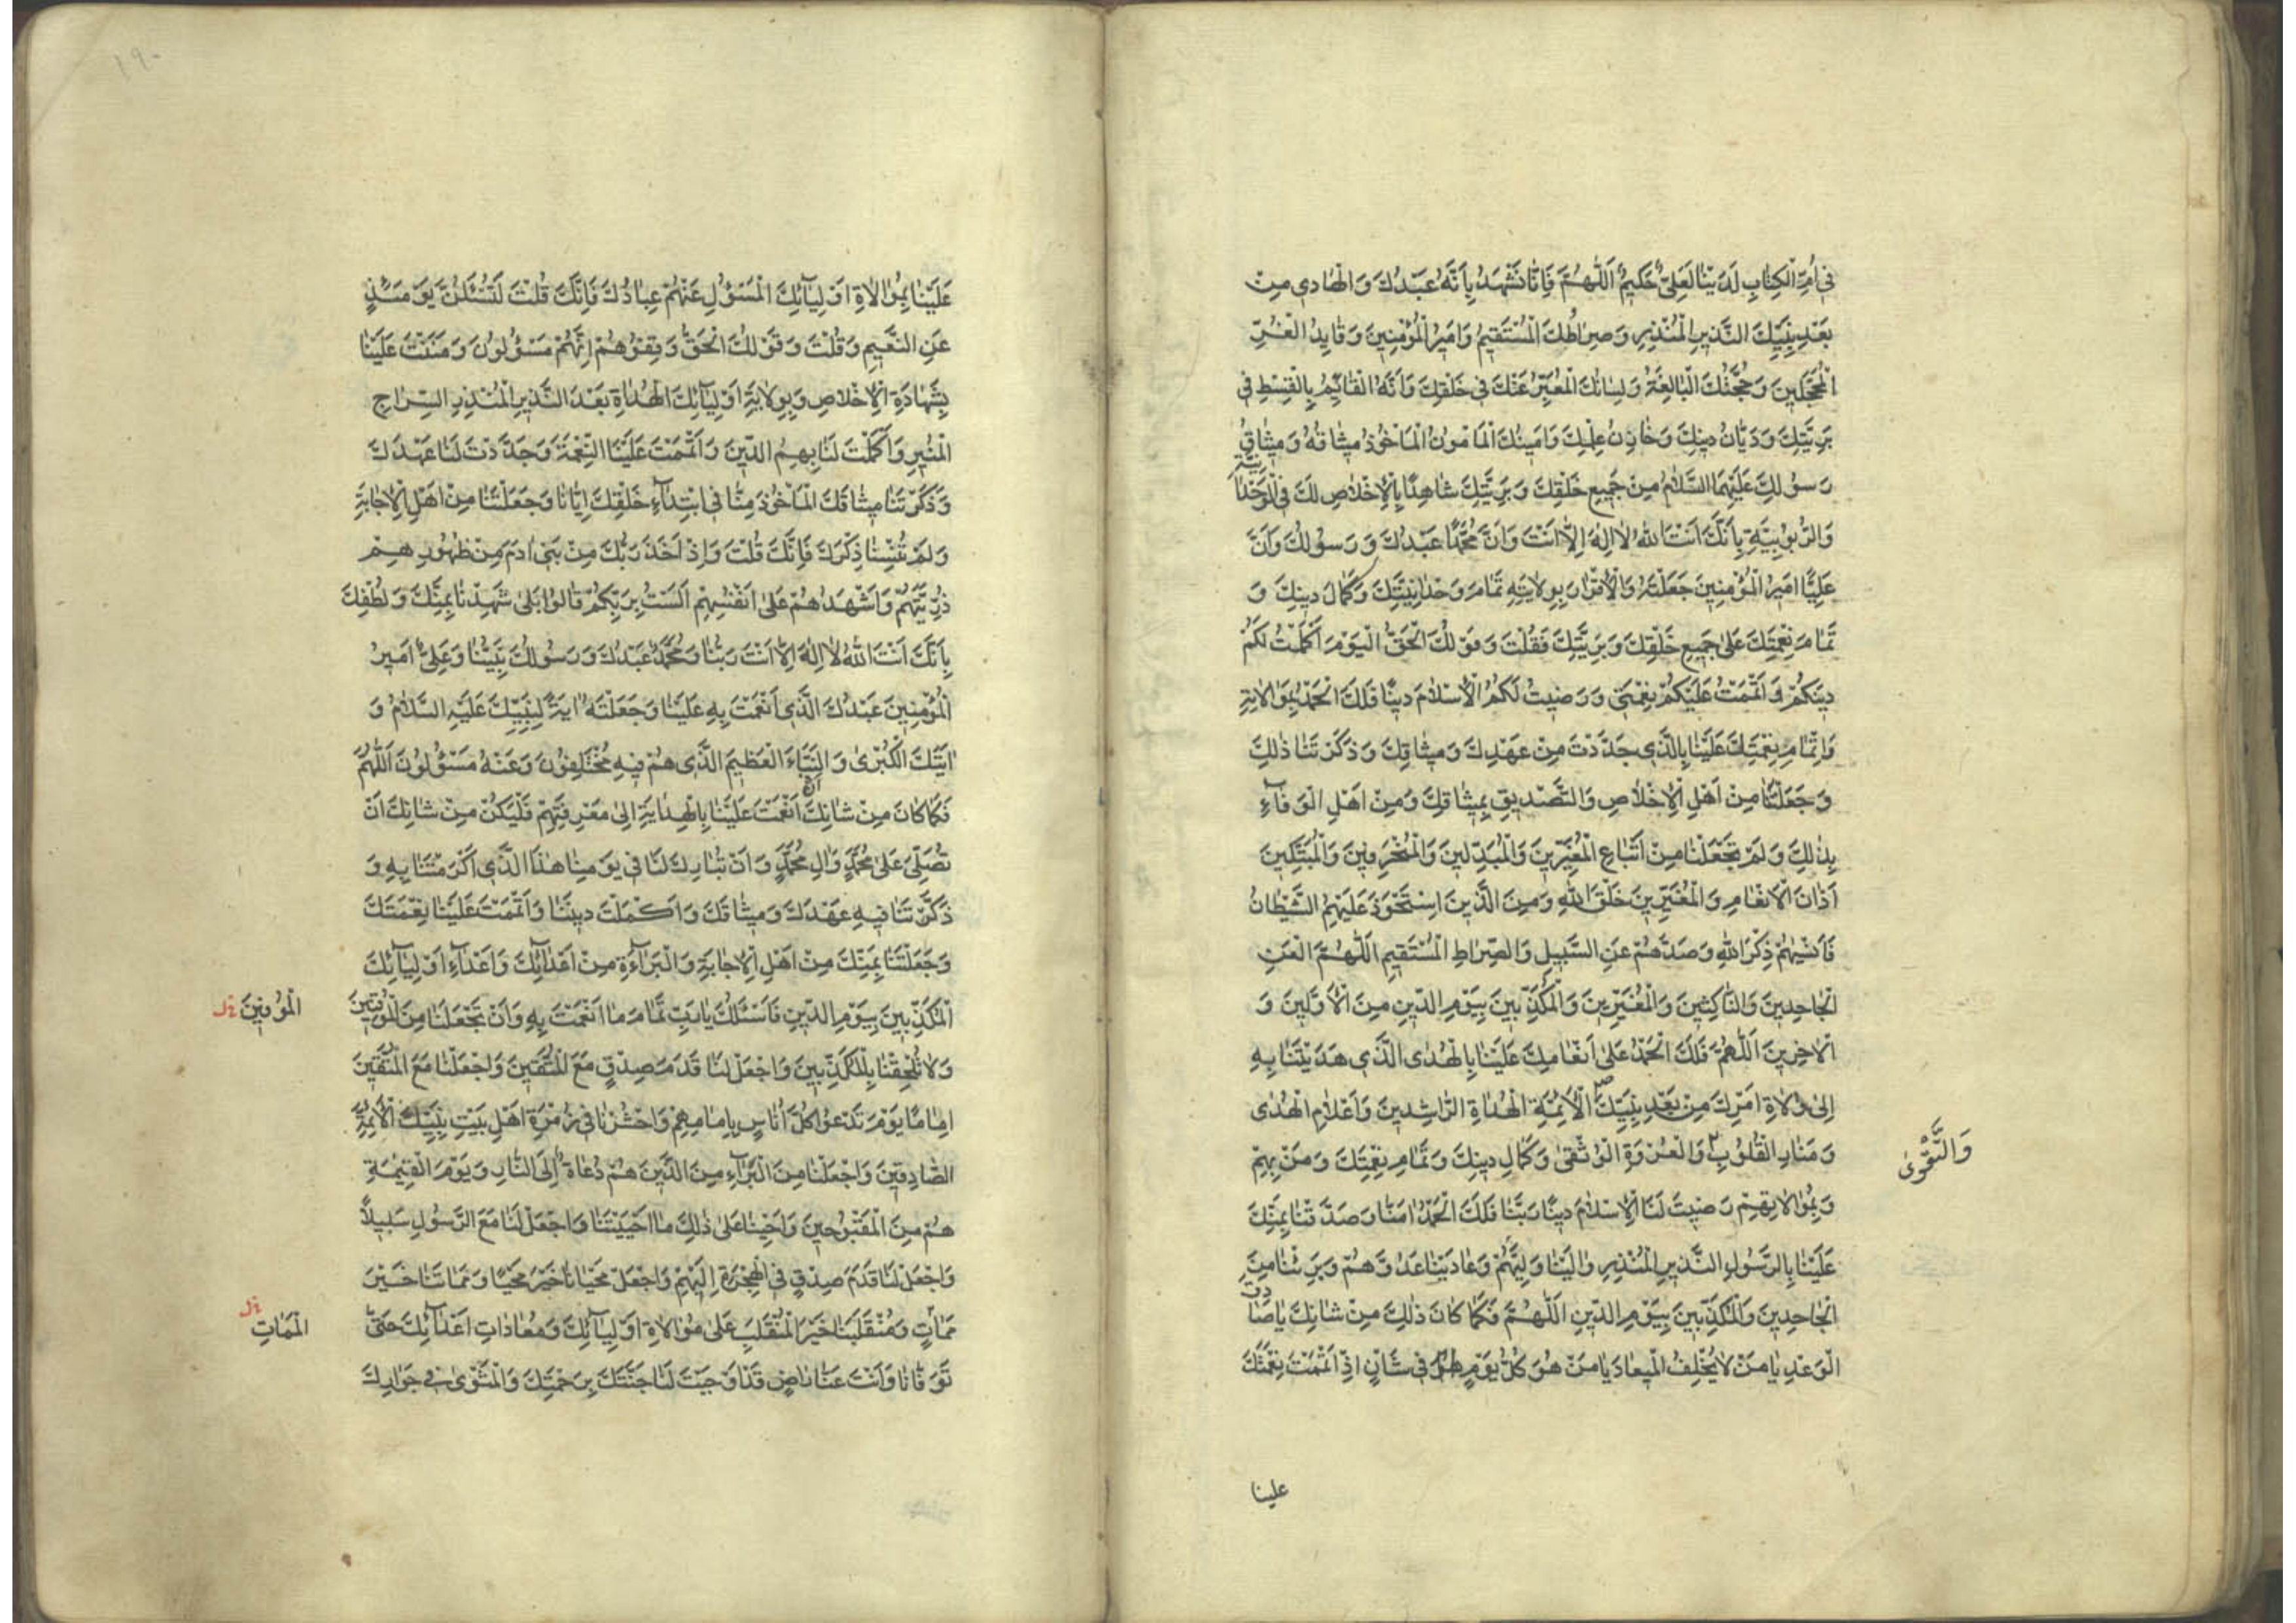 فِي أُمِّ الْكِتَابِ لَدَيْنَا لَعَلِيٌّ حَكِيمٌ اَللّٰهُمَّ فَاِنَّا نَشْهَدُ بِاَنَّهُ عَبْدُكَ وَ الْهَادِي مِنْ
بَعْدِ نَبِيِّكَ النَّذِيرِ الْمُنْذِرِ وَ صِرَاطُكَ الْمُسْتَقِيمُ وَ اَمِيرُ الْمُؤْمِنِينَ وَ قَايِدُ الْغُرِّ
الْمُحَجَّلِينَ وَ حُجَّتُكَ الْبَالِغَةُ وَ لِسَانُكَ الْمُعَبِّرُ عَنْكَ فِي خَلْقِكَ وَ اَنَّهُ الْقَائِمُ بِالْقِسْطِ فِي
بَرِيَّتِكَ وَ دَيَّانُ دِينِكَ وَ خَازِنُ عِلْمِكَ وَ اَمِينُكَ الْمَأْمُونُ الْمَأْخُوذُ مِيثَاقُهُ وَ مِيثَاقُ
رَسُولِكَ عَلَيْهِمَا السَّلَامُ مِنْ جَمِيعِ خَلْقِكَ وَ بَرِيَّتِكَ شَاهِدًا بِالْاِخْلَاصِ لَكَ فِي الْوَحْدَانِيَّةِ
وَ الرُّبُوبِيَّةِ بِاَنَّكَ اَنْتَ اللهُ لَا اِلٰهَ اِلَّا اَنْتَ وَ اَنَّ مُحَمَّدًا عَبْدُكَ وَ رَسُولُكَ وَ اَنَّ
عَلِيًّا اَمِيرُ الْمُؤْمِنِينَ جَعَلْتَهُ وَ الْاِقْرَارَ بِوِلَايَتِهِ تَمَامَ وَحْدَانِيَّتِكَ وَ كَمَالَ دِينِكَ وَ
تَمَامَ نِعْمَتِكَ عَلَى جَمِيعِ خَلْقِكَ وَ بَرِيَّتِكَ فَقُلْتَ وَ قَوْلُكَ الْحَقُّ الْيَوْمَ اَكْمَلْتُ لَكُمْ
دِينَكُمْ وَ اَتْمَمْتُ عَلَيْكُمْ نِعْمَتِي وَ رَضِيتُ لَكُمُ الْاِسْلَامَ دِينًا فَلَكَ الْحَمْدُ بِمُوَالَاتِهِ
وَ اِتْمَامِ نِعْمَتِكَ عَلَيْنَا بِالَّذِي جَدَّدْتَ مِنْ عَهْدِكَ وَ مِيثَاقِكَ وَ ذَكَّرْتَنَا ذٰلِكَ
وَ جَعَلْتَنَا مِنْ اَهْلِ الْاِخْلَاصِ وَ التَّصْدِيقِ بِمِيثَاقِكَ وَ مِنْ اَهْلِ الْوَفَاءِ
بِذٰلِكَ وَ لَمْ تَجْعَلْنَا مِنْ اَتْبَاعِ الْمُغَيِّرِينَ وَ الْمُبَدِّلِينَ وَ الْمُنْحَرِفِينَ وَ الْمُبَتِّكِينَ
آذَانَ الْاَنْعَامِ وَ الْمُغَيِّرِينَ خَلْقَ اللهِ وَ مِنَ الَّذِينَ اسْتَحْوَذَ عَلَيْهِمُ الشَّيْطَانُ
فَاَنْسٰيهُمْ ذِكْرَ اللهِ وَ صَدَّهُمْ عَنِ السَّبِيلِ وَ الصِّرَاطِ الْمُسْتَقِيمِ اَللّٰهُمَّ الْعَنِ
الْجَاحِدِينَ وَ النَّاكِثِينَ وَ الْمُغَيِّرِينَ وَ الْمُكَذِّبِينَ بِيَوْمِ الدِّينِ مِنَ الْاَوَّلِينَ وَ
الْآخِرِينَ اَللّٰهُمَّ فَلَكَ الْحَمْدُ عَلَى اِنْعَامِكَ عَلَيْنَا بِالْهُدَى الَّذِي هَدَيْتَنَا بِهِ
اِلَى وُلَاةِ اَمْرِكَ مِنْ بَعْدِ نَبِيِّكَ الْاَئِمَّةِ الْهُدَاةِ الرَّاشِدِينَ وَ اَعْلَامِ الْهُدَى
وَ مَنَارِ الْقُلُوبِ وَ الْعُرْوَةِ الْوُثْقَى وَ كَمَالِ دِينِكَ وَ تَمَامِ نِعْمَتِكَ وَ مَنْ بِهِمْ
وَالتَّقْوٰى
وَ بِمُوَالَاتِهِمْ رَضِيتَ لَنَا الْاِسْلَامَ دِينًا رَبَّنَا فَلَكَ الْحَمْدُ آمَنَّا وَ صَدَّقْنَا بِمَنِّكَ
عَلَيْنَا بِالرَّسُولِ النَّذِيرِ الْمُنْذِرِ وَالَيْنَا وَلِيَّهُمْ وَ عَادَيْنَا عَدُوَّهُمْ وَ بَرِئْنَا مِنَ
الْجَاحِدِينَ وَ الْمُكَذِّبِينَ بِيَوْمِ الدِّينِ اَللّٰهُمَّ فَكَمَا كَانَ ذٰلِكَ مِنْ شَانِكَ يَا صَادِقَ
الْوَعْدِ يَا مَنْ لَا يُخْلِفُ الْمِيعَادَ يَا مَنْ هُوَ كُلَّ يَوْمٍ فِي شَانٍ اِذْ اَتْمَمْتَ نِعْمَتَكَ
علينا
١٩٠
عَلَيْنَا بِمُوَالَاةِ اَوْلِيَائِكَ الْمَسْؤُلِ عَنْهُمْ عِبَادُكَ فَاِنَّكَ قُلْتَ لَتُسْئَلُنَّ يَوْمَئِذٍ
عَنِ النَّعِيمِ وَ قُلْتَ وَ قَوْلُكَ الْحَقُّ وَ قِفُوهُمْ اِنَّهُمْ مَسْؤُلُونَ وَ مَنَنْتَ عَلَيْنَا
بِشَهَادَةِ الْاِخْلَاصِ وَ بِوِلَايَةِ اَوْلِيَائِكَ الْهُدَاةِ بَعْدَ النَّذِيرِ الْمُنْذِرِ السِّرَاجِ
الْمُنِيرِ وَ اَكْمَلْتَ لَنَا بِهِمُ الدِّينَ وَ اَتْمَمْتَ عَلَيْنَا النِّعْمَةَ وَ جَدَّدْتَ لَنَا عَهْدَكَ
وَ ذَكَّرْتَنَا مِيثَاقَكَ الْمَأْخُوذَ مِنَّا فِي ابْتِدَاءِ خَلْقِكَ اِيَّانَا وَ جَعَلْتَنَا مِنْ اَهْلِ الْاِجَابَةِ
وَ لَمْ تُنْسِنَا ذِكْرَكَ فَاِنَّكَ قُلْتَ وَ اِذْ اَخَذَ رَبُّكَ مِنْ بَنِي آدَمَ مِنْ ظُهُورِهِمْ
ذُرِّيَّتَهُمْ وَ اَشْهَدَهُمْ عَلَى اَنْفُسِهِمْ اَلَسْتُ بِرَبِّكُمْ قَالُوا بَلَى شَهِدْنَا بِمَنِّكَ وَ لُطْفِكَ
بِاَنَّكَ اَنْتَ اللهُ لَا اِلٰهَ اِلَّا اَنْتَ رَبُّنَا وَ مُحَمَّدٌ عَبْدُكَ وَ رَسُولُكَ نَبِيُّنَا وَ عَلِيٌّ اَمِيرُ
الْمُؤْمِنِينَ عَبْدُكَ الَّذِي اَنْعَمْتَ بِهِ عَلَيْنَا وَ جَعَلْتَهُ آيَةً لِنَبِيِّكَ عَلَيْهِ السَّلَامُ وَ
آيَتَكَ الْكُبْرَى وَ النَّبَاءَ الْعَظِيمَ الَّذِي هُمْ فِيهِ مُخْتَلِفُونَ وَ عَنْهُ مَسْؤُلُونَ اَللّٰهُمَّ
فَكَمَا كَانَ مِنْ شَانِكَ اَنْ اَنْعَمْتَ عَلَيْنَا بِالْهِدَايَةِ اِلَى مَعْرِفَتِهِمْ فَلْيَكُنْ مِنْ شَانِكَ اَنْ
تُصَلِّيَ عَلَى مُحَمَّدٍ وَ آلِ مُحَمَّدٍ وَ اَنْ تُبَارِكَ لَنَا فِي يَوْمِنَا هٰذَا الَّذِي اَكْرَمْتَنَا بِهِ وَ
ذَكَّرْتَنَا فِيهِ عَهْدَكَ وَ مِيثَاقَكَ وَ اَكْمَلْتَ دِينَنَا وَ اَتْمَمْتَ عَلَيْنَا نِعْمَتَكَ
وَ جَعَلْتَنَا بِمَنِّكَ مِنْ اَهْلِ الْاِجَابَةِ وَ الْبَرَاءَةِ مِنْ اَعْدَائِكَ وَ اَعْدَاءِ اَوْلِيَائِكَ
الْمُكَذِّبِينَ بِيَوْمِ الدِّينِ فَاَسْئَلُكَ يَا رَبِّ تَمَامَ مَا اَنْعَمْتَ بِهِ وَ اَنْ تَجْعَلَنَا مِنَ الْمُوقِنِينَ
الْمُوفِينَ
وَ لَا تُلْحِقْنَا بِالْمُكَذِّبِينَ وَ اجْعَلْ لَنَا قَدَمَ صِدْقٍ مَعَ الْمُتَّقِينَ وَ اجْعَلْنَا مَعَ الْمُتَّقِينَ
اِمَامًا يَوْمَ تَدْعُوا كُلَّ اُنَاسٍ بِاِمَامِهِمْ وَ احْشُرْنَا فِي زُمْرَةِ اَهْلِ بَيْتِ نَبِيِّكَ الْاَئِمَّةِ
الصَّادِقِينَ وَ اجْعَلْنَا مِنَ الْبُرَآءِ مِنَ الَّذِينَ هُمْ دُعَاةٌ اِلَى النَّارِ وَ يَوْمَ الْقِيٰمَةِ
هُمْ مِنَ الْمَقْبُوحِينَ وَ اَحْيِنَا عَلَى ذٰلِكَ مَا اَحْيَيْتَنَا وَ اجْعَلْ لَنَا مَعَ الرَّسُولِ سَبِيلًا
وَ اجْعَلْ لَنَا قَدَمَ صِدْقٍ فِي الْهِجْرَةِ اِلَيْهِمْ وَ اجْعَلْ مَحْيَانَا خَيْرَ مَحْيًا وَ مَمَاتَنَا خَيْرَ
مَمَاتٍ وَ مُنْقَلَبَنَا خَيْرَ الْمُنْقَلَبِ عَلَى مُوَالَاةِ اَوْلِيَائِكَ وَ مُعَادَاتِ اَعْدَائِكَ حَتَّى
الْمَمَاتِ
تَوَفَّانَا وَ اَنْتَ عَنَّا رَاضٍ قَدْ اَوْجَبْتَ لَنَا جَنَّتَكَ بِرَحْمَتِكَ وَ الْمَثْوَى فِي جَوَارِكَ